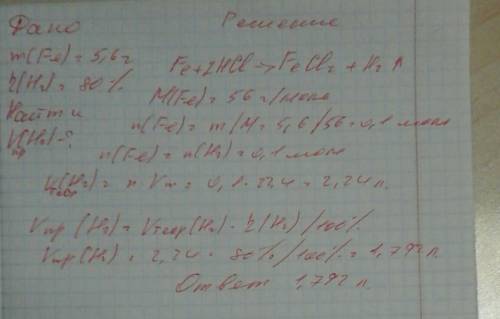 Дано Решение
m(Fe) = 5,6г
η(H₂) = 80%
Найти
Vпр(H₂)-?
Fe+2HCl → FeCl₂ + H₂↑
M(Fe) = 56 г/моль
n(Fe) = m/M = 5,6/56 = 0,1 моль
n(Fe) = n(H₂) = 0,1 моль
Vтеор(H₂) = n · Vm = 0,1 · 22,4 = 2,24 л.
Vпр (H₂) = Vтеор(H₂) · η(H₂) /100%
Vпр(H₂) = 2,24 · 80%/100% = 1,792 л.
Ответ 1,792 л.